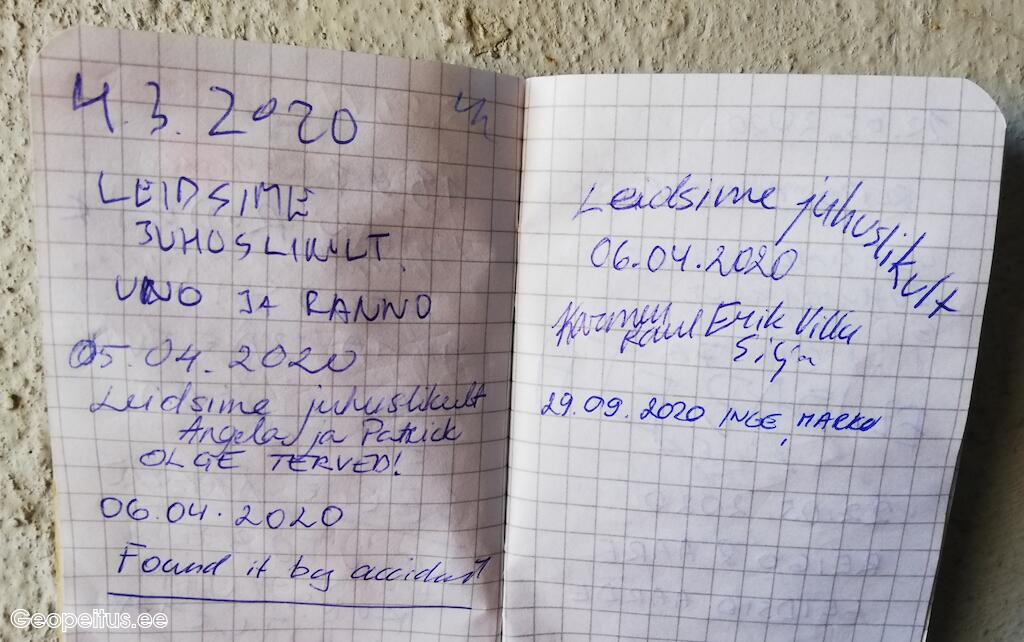 4.3.2020
LEIDSIME
JUHUSLIKULT
UNO JA RANNO
05.04.2020
Leidsime juhuslikult
Angela ja Patrick
OLGE TERVED!
06.04.2020
Found it by accident
Leidsime juhuslikult
06.04.2020
Karmen Raul Erik Villu
Silja
29.09.2020 INGE, MARKO
Geopeitus.ee